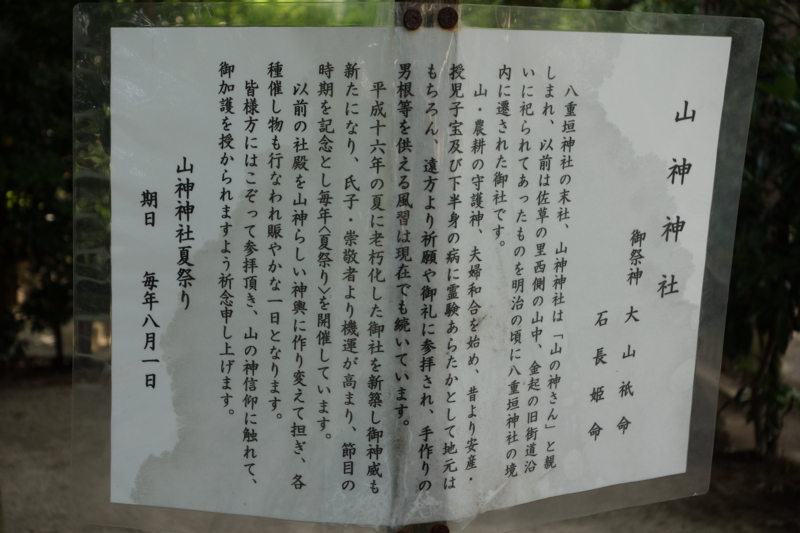 山神神社
御祭神 大山祇命
石長姫命
八重垣神社の末社、山神神社は「山の神さん」と親
しまれ、以前は佐草の里西側の山中、金起の旧街道沿
いに祀られてあったものを明治の頃に八重垣神社の境
内に遷された御社です。
山・農耕の守護神、夫婦和合を始め、昔より安産・
授児子宝及び下半身の病に霊験あらたかとして地元は
もちろん 遠方より祈願や御礼に参拝され、手作りの
男根等を供える風習は現在でも続いています。
平成十六年の夏に老朽化した御社を新築し御神威も
新たになり、氏子・崇敬者より機運が高まり、節目の
時期を記念とし毎年〈夏祭り〉を開催しています。
以前の社殿を山神らしい神輿に作り変えて担ぎ、各
種催し物も行なわれ賑やかな一日となります。
皆様方にはこぞって参拝頂き、山の神信仰に触れて、
御加護を授かられますよう祈念申し上げます。
山神神社夏祭り
期日 毎年八月一日